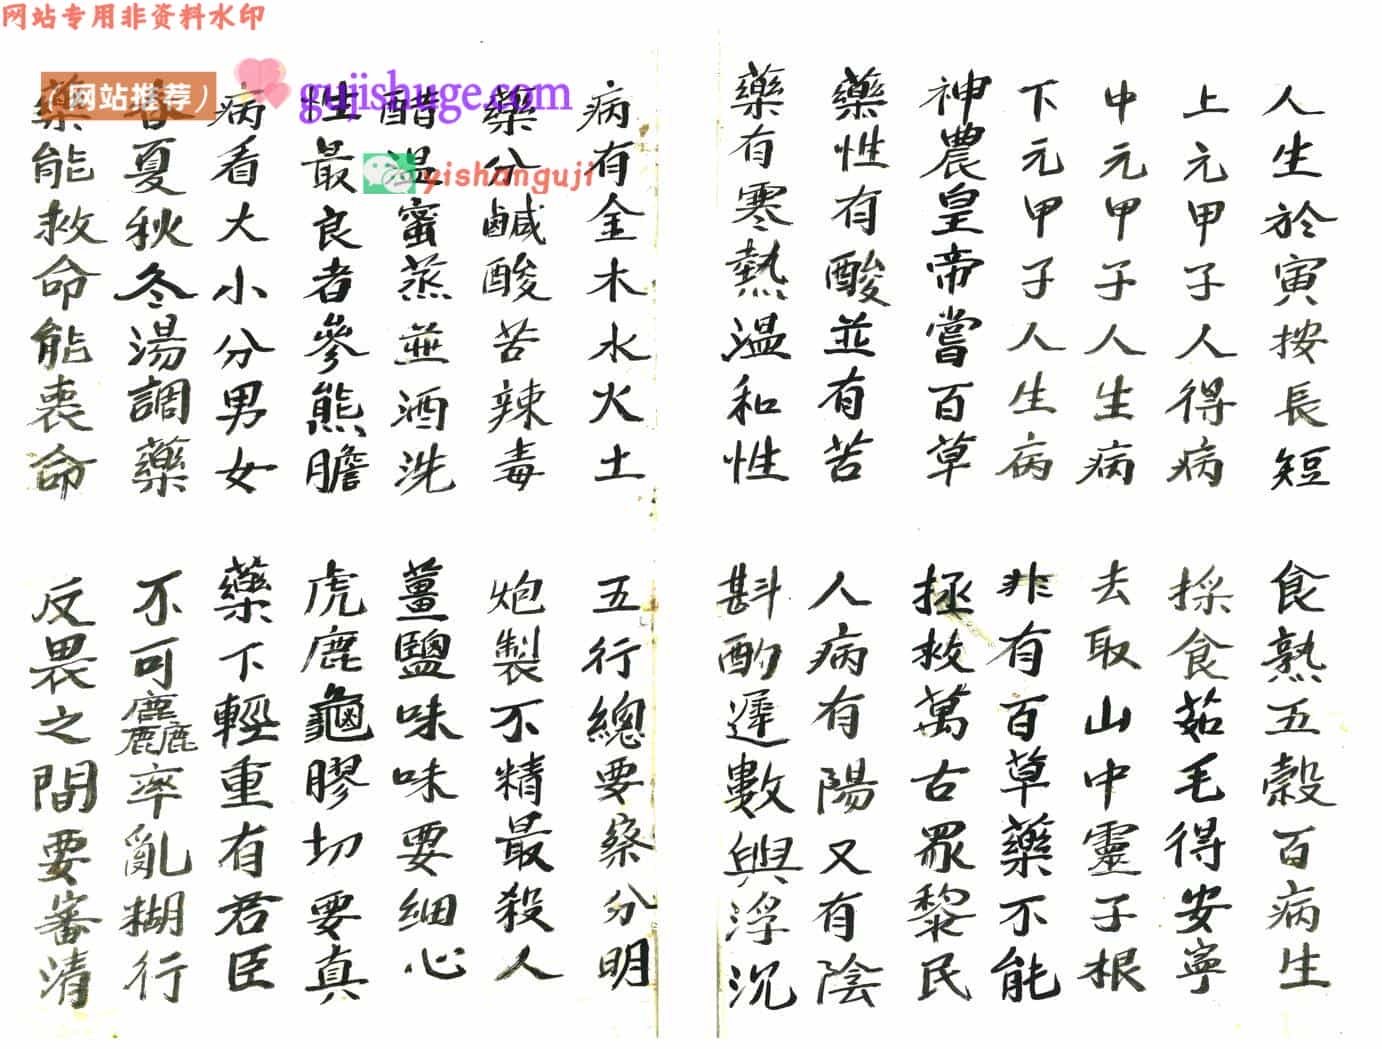 网站专用非资料水印
(网站推荐)
gujishuge.com
yishanguji
人生於寅按長短 食熟五穀百病生
上元甲子人得病 採食茹毛得安寧
中元甲子人生病 去取山中靈子根
下元甲子人生病 非有百草藥不能
神農皇帝嘗百草 拯救萬古眾黎民
藥性有酸並有苦 人病有陽又有陰
藥有寒熱溫和性 斟酌遲數與浮沉
病有金木水火土 五行總要察分明
藥分鹹酸苦辣毒 炮製不精最殺人
醋溫蜜蒸並酒洗 薑鹽味味要細心
性最良者參熊膽 虎鹿龜膠切要真
病看大小分男女 藥下輕重有君臣
春夏秋冬湯調藥 不可麤率亂糊行
藥能救命能喪命 反畏之間要審清